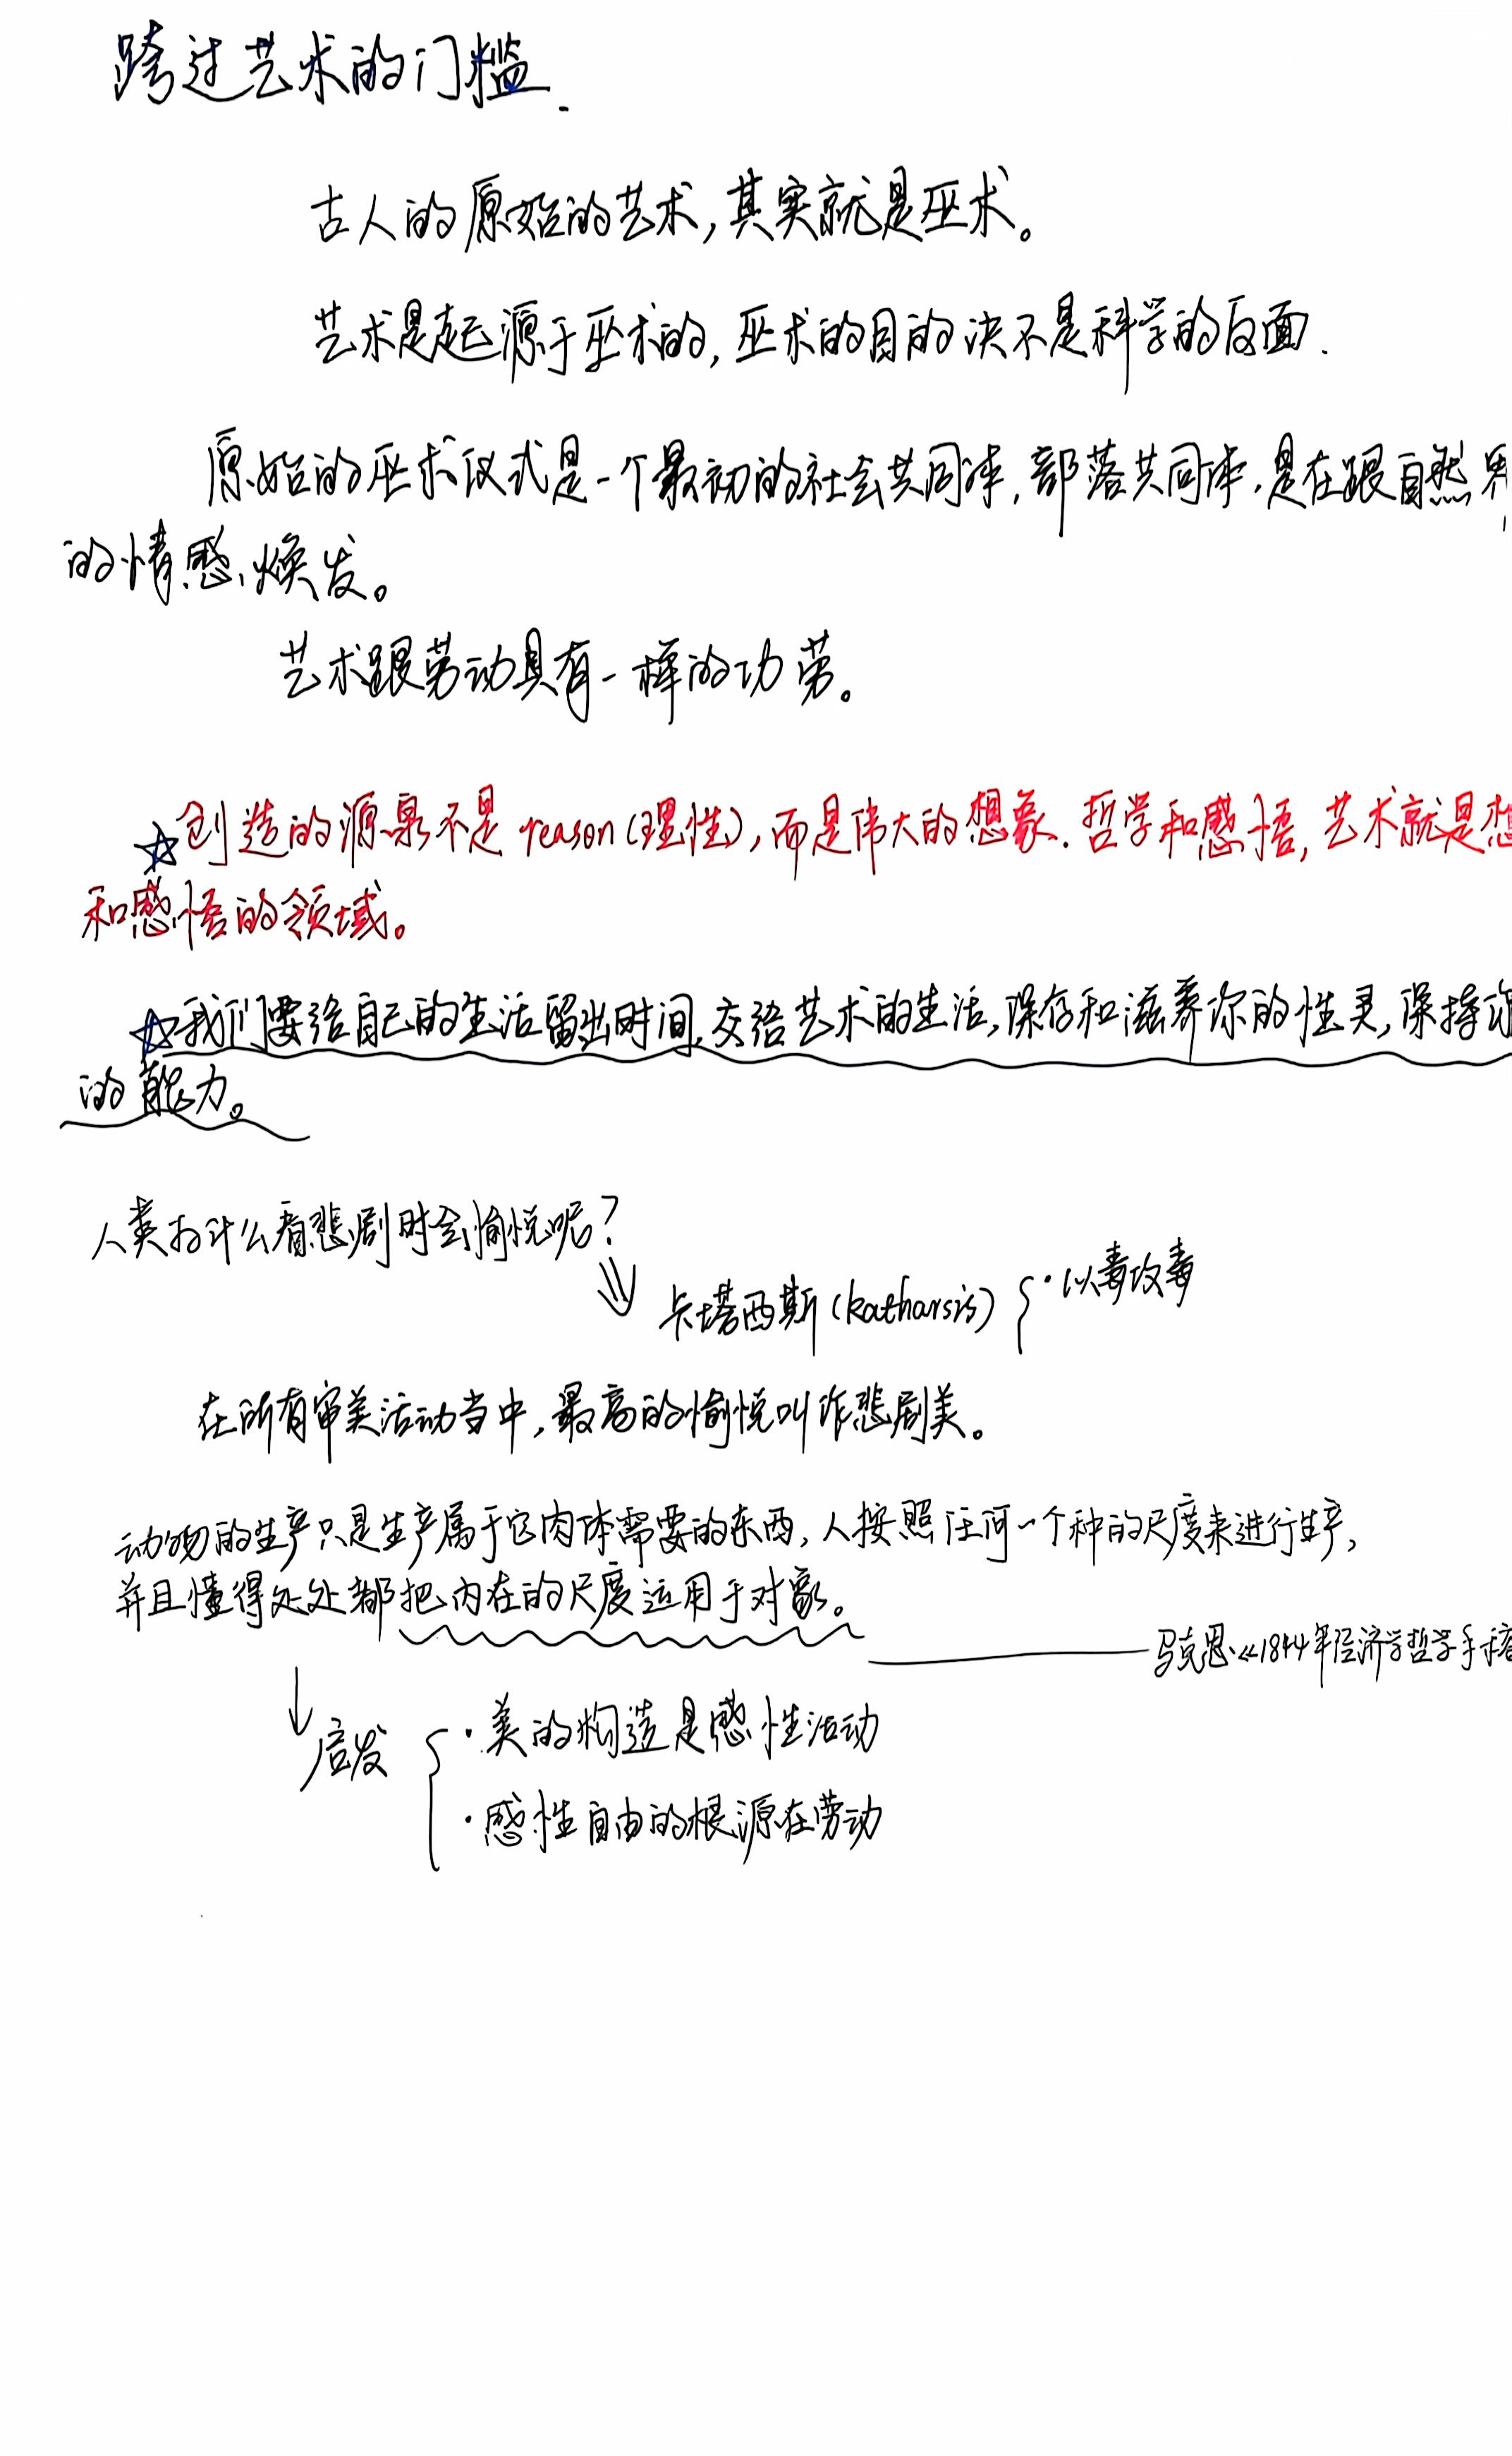 跨过艺术的门槛.
古人的原始的艺术,其实就是巫术。
艺术是起源于巫术的,巫术的目的决不是科学的反面.
原始的巫术仪式是一个最初的社会共同体,部落共同体,是在跟自然界
的情感焕发。
艺术跟劳动具有一样的功劳。
☆创造的源泉不是reason(理性),而是伟大的想象.哲学和感悟,艺术就是想
和感悟的领域。
☆我们要给自己的生活留出时间,交给艺术的生活,保存和滋养你的性灵,保持
的能力。
人类为什么看悲剧时会愉悦呢?
卡塔西斯(katharsis) ·以毒攻毒
在所有审美活动当中,最高的愉悦叫作悲剧美。
动物的生产只是生产属于它肉体需要的东西,人按照任何一个种的尺度来进行生产,
并且懂得处处都把内在的尺度运用于对象。
——马克思《1844年经济学哲学手稿
启发
·美的构造是感性活动
·感性自由的根源在劳动